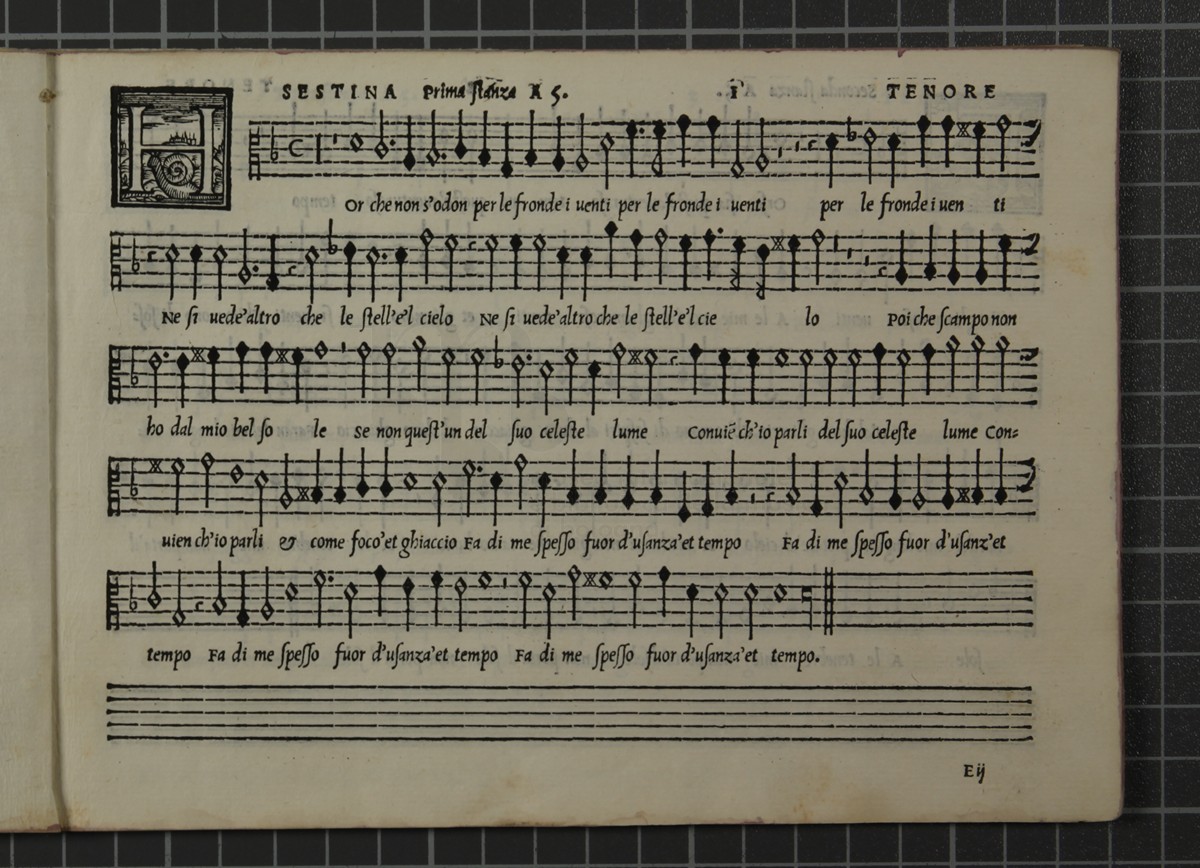 SESTINA Prima stanza A 5. 1 TENORE
HOr che non s'odon per le fronde i uenti per le fronde i uenti per le fronde i uen ti
Ne si uede'altro che le stell'e'l cielo Ne si uede'altro che le stell'e'l cie lo Poi che scampo non
ho dal mio bel so le se non quest'un del suo celeste lume Conuiẽ ch'io parli del suo celeste lume Con=
uien ch'io parli & come foco'et ghiaccio Fa di me spesso fuor d'usanza'et tempo Fa di me spesso fuor d'usanz'et
tempo Fa di me spesso fuor d'usanza'et tempo Fa di me spesso fuor d'usanza'et tempo.
E ij